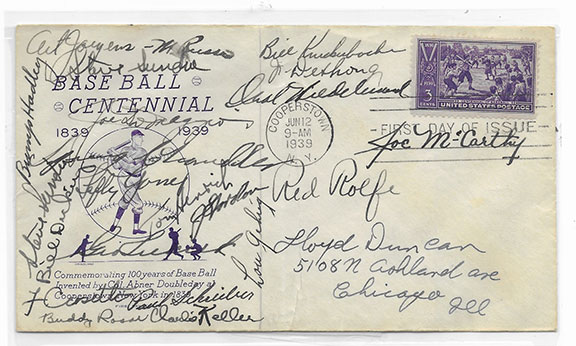 Art Jorgens - M. Russo
Steve Sundra
BASE BALL
CENTENNIAL
1839 1939
Joe DiMaggio
Bump Hadley
Bill Knickerbocker
J. DeShong
Oral Hildebrand
COOPERSTOWN
JUN 12
9-AM
1939
N. Y.
3
CENTS
UNITED STATES POSTAGE
FIRST DAY OF ISSUE
Joe McCarthy
Spurgeon Chandler
Lefty Gomez
Tom Henrich
J Gordon
Red Rolfe
Bill Dickey
Lou Gehrig
Lloyd Duncan
5108 N Ashland ave
Chicago
Ill
Commemorating 100 years of Base Ball
Invented by Col. Abner Doubleday at
Cooperstown, New York in 1839
F. Crosetti
Paul Schreiber
Buddy Rosar Charlie Keller